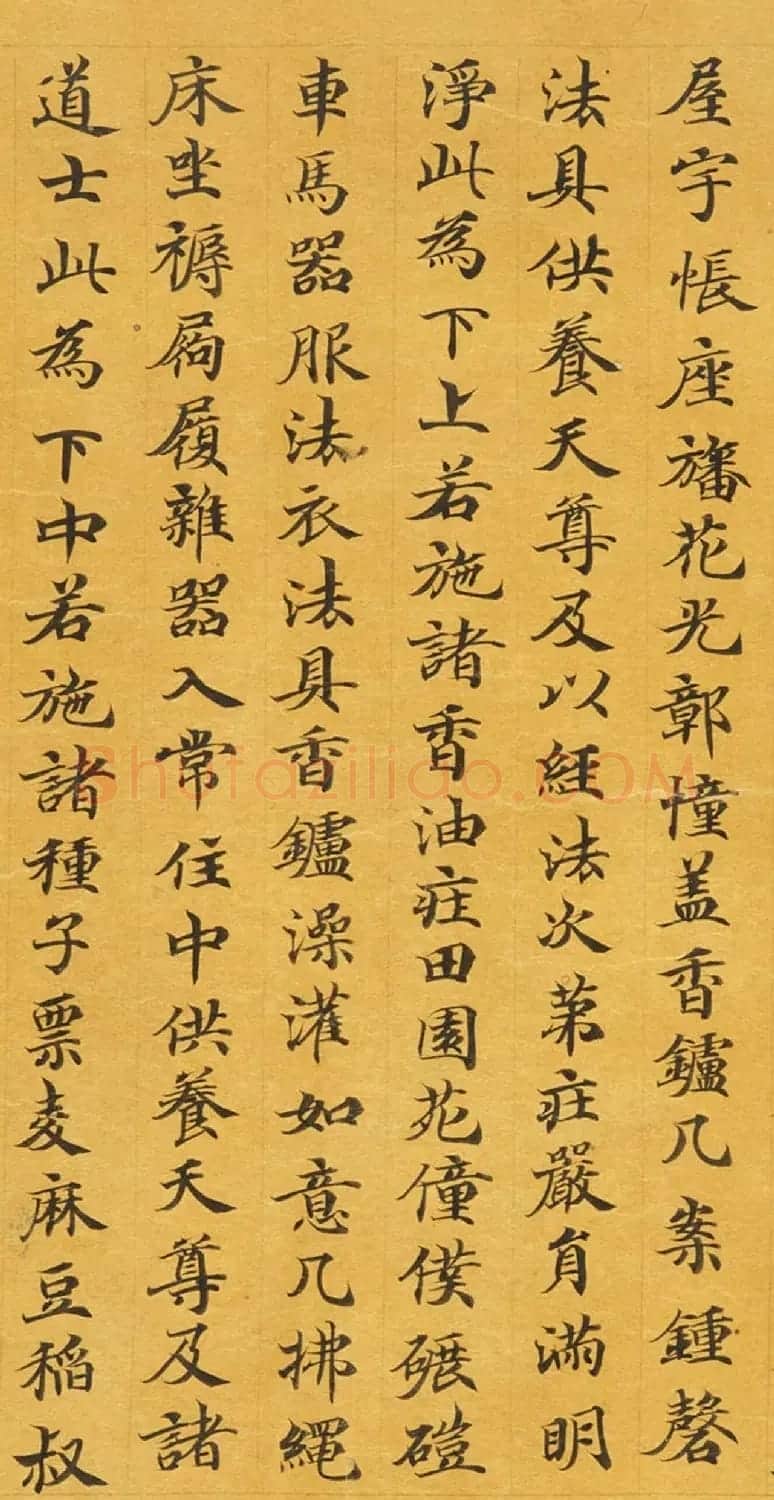 屋宇帳座旛花光鄣幢盖香鑪几案鍾磬
法具供養天尊及以經法次苐莊嚴負滿明
淨此為下上若施諸香油莊田園苑僮僕碾磑
車馬器服法衣法具香鑪澡灌如意几拂繩
床坐褥屩履雜器入常住中供養天尊及諸
道士此為下中若施諸種子粟麦麻豆稻叔
Shufaziliao.COM